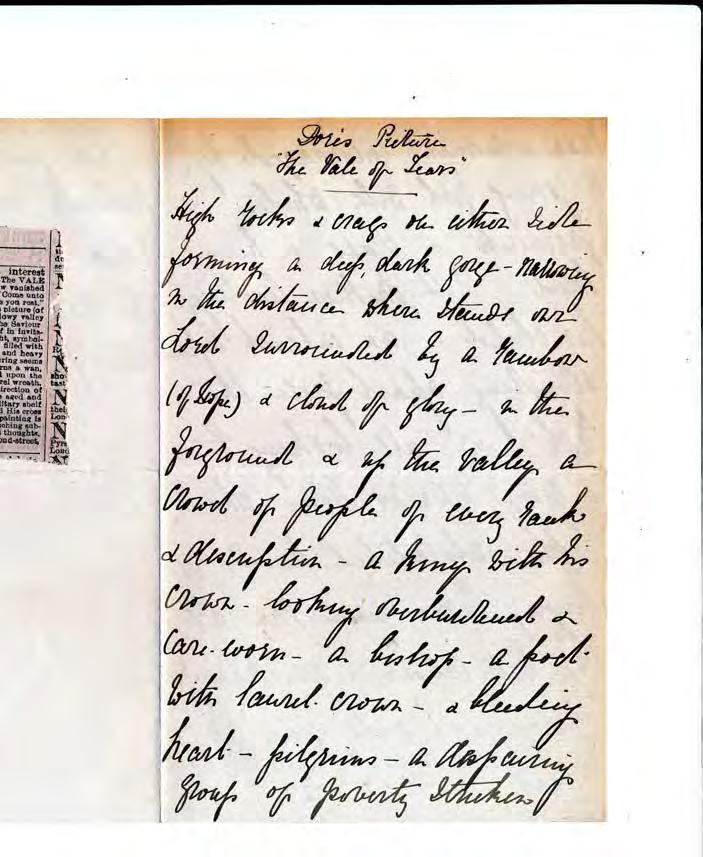 interest
The VALE
w vanished
"Come unto
s you rest."
picture (of
lowy valley
he Saviour
f in invita-
ht, symbol-
filled with
and heavy
ring seems
rns a wan,
d upon the
ral wreath.
irection of
e aged and
litary shelf
d His cross
painting is
ching sub-
thoughts.
ond-street,
Doré's Picture
"The Vale of Tears"
High rocks & crags on either side
forming a deep, dark gorge - narrowing
in the distance where stands our
Lord surrounded by a rainbow
(of hope) & cloud of glory - in the
forground & up the valley a
crowd of people of every rank
& description - a king with his
crown - looking overburdened &
care-worn - a bishop - a poet
with laurel crown - & bleeding
heart - pilgrims - a despairing
group of poverty stricken